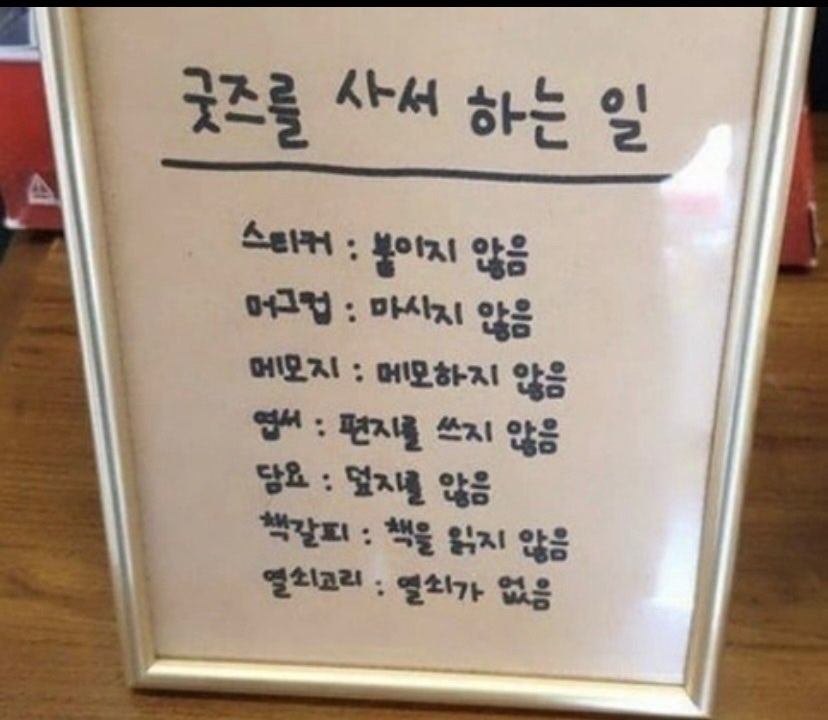 굿즈를 사서 하는 일
스티커 : 붙이지 않음
머그컵 : 마시지 않음
메모지 : 메모하지 않음
엽서 : 편지를 쓰지 않음
담요 : 덮지를 않음
책갈피 : 책을 읽지 않음
열쇠고리 : 열쇠가 없음